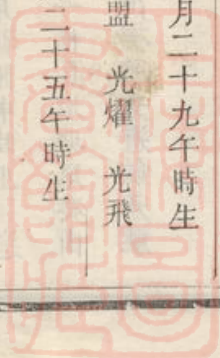 月二十九午時生
盟 光燿 光飛
二十五午時生